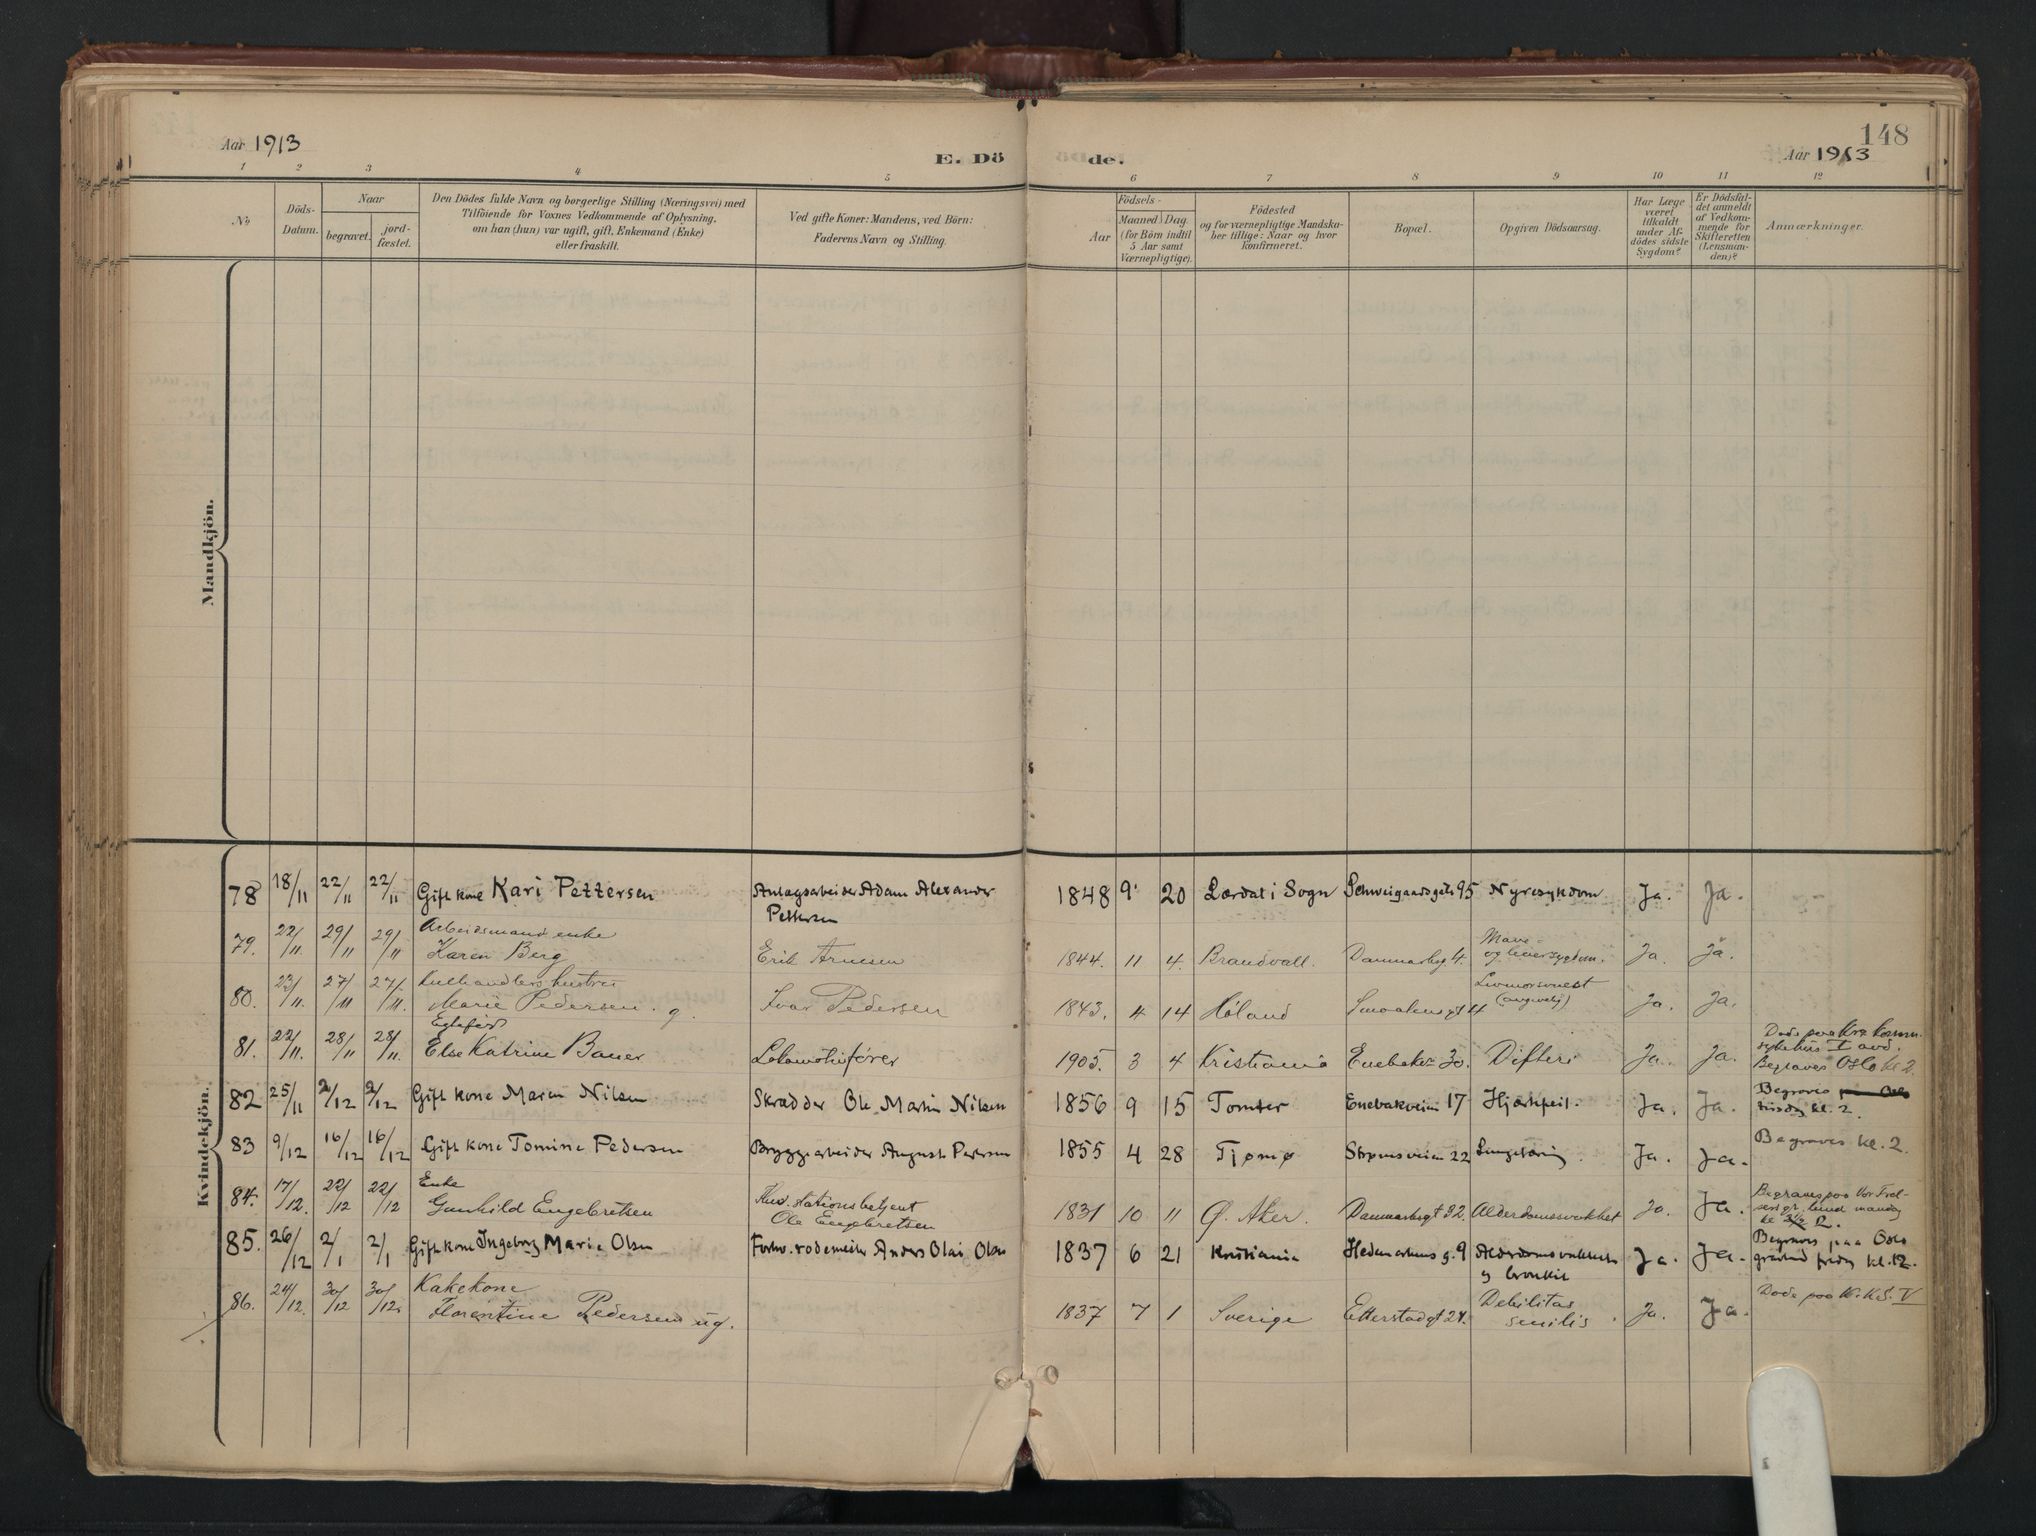 148
Aar 1913
E. Dö de.
Aar 1913
1 2 3 4 5 6 7 8 9 10 11 12
No
Döds-
Datum.
Naar
begravet.
jord-
fæstet.
Den Dödes fulde Navn og borgerlige Stilling (Næringsvei) med
Tilföiende for Voxnes Vedkommende af Oplysning,
om han (hun) var ugift, gift, Enkemand (Enke)
eller fraskilt.
Ved gifte Koner: Mandens, ved Börn:
Faderens Navn og Stilling.
Födsels-
Aar
Maaned Dag
(for Börn indtil
5 Aar samt
Værnepligtige).
Födested
og for værnepligtige Mandska-
ber tillige: Naar og hvor
konfirmeret.
Bopæl.
Opgiven Dödsaarsag.
Har Læge
været
tilkaldt
under Af-
dödes sidste
Sygdom?
Er Dödsfal-
det anmeldt
af Vedkom-
mende for
Skifteretten
(Lensman-
den)?
Anmærkninger.
Mandkjön.
Kvindekjön.
78 18/11 22/11 22/11 Gift kone Kari Pettersen Anlægsarbeider Adam Alexander
Pettersen
1848 9 20 Lærdal i Sogn Schweigaardsgate 95 Nyresykdom Ja. Ja.
79. 22/11. 29/11 29/11 Arbeidsmand enke
Karen Berg Erik Arnesen
1844. 11 4. Brandvall. Danmarksg. 4. Mave-
og leversygdom. Ja. Ja.
80. 23/11. 27/11 27/11. Kulhandlers hustru
Marie Pedersen. g. Ivar Pedersen
1843. 4 14 Høland 4 Livmorsvulst
Ja. Ja.
81. 22/11. 28/11 28/11. Egtefød
Else Katrine Bauer Lokomotivfører
1905. 3 4 Kristiania Enebakv. 30. Difteri Ja. Ja. Døde paa Kra. komm.
sykehus I avd.
Begraves Oslo kl 2.
82 25/11 2/12 2/12 Gift kone Maren Nilsen Skrædder Ole Martin Nilsen
1856 9 15 Tomter Enebakveien 17 Hjærtefeil. Ja. Ja. Begraves paa Oslo
tirsdag kl. 2.
83 9/12 16/12 16/12 Gift kone Tomine Pedersen Bryggearbeider August Pedersen
1855 4 28 Tjømø Strømsveien 22 Ja. Ja. Begraves kl. 2.
84. 17/12. 22/12 22/12 Enke
Gunhild Engebretsen stationsbetjent
Ole Engebretsen
1831 10 11 Ø. Aker. Danmarksgt 32. Alderdomssvakhet Ja. Ja. Begraves paa Vor Frel-
sers gr. lund mandag
kl
85. 26/12 2/1 2/1 Gift kone Ingeborg Marie Olsen Forhv. rodemester Anders Olai Olsen
1837 6 21 Kristiania Hedemarkens g. 9 Alderdomsvakhet
og bronkit Ja. Ja. Begraves paa Oslo
gravlund fredag kl. 12.
86. 24/12. 30/12 30/12. Kakekone
Florentine Pedersen ug.
1837 7 1 Sverige Etterstadgt 24. Debilitas
senilis. Ja. Ja. Døde paa K. K. S. V